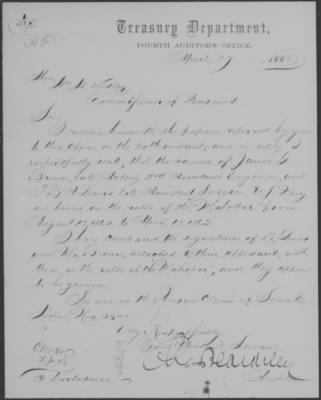 Treasury Department,
FOURTH AUDITOR'S OFFICE,
April 27, 188
Hon. Wm. W. Dudley,
Commissioner of Pensions
Sir,
I return herewith the papers referred by you
to this office on the 20th instant, and in reply I
respectfully state, that the names of James
Brown, late Acting 3rd Assistant Engineer, and
late Assistant Surgeon U. S. Navy
are borne on the rolls of the "Mahopac" from
August 1864 to April 12, 1865.
I have compared the signatures of
and Mr. Brown, attached to their affidavits, with
those on the rolls of the "Mahopac", and they appear
to be genuine.
in the Pension Claim of
Very Respectfully
Your Obedient Servant
Beardsley
Auditor
Inclosures